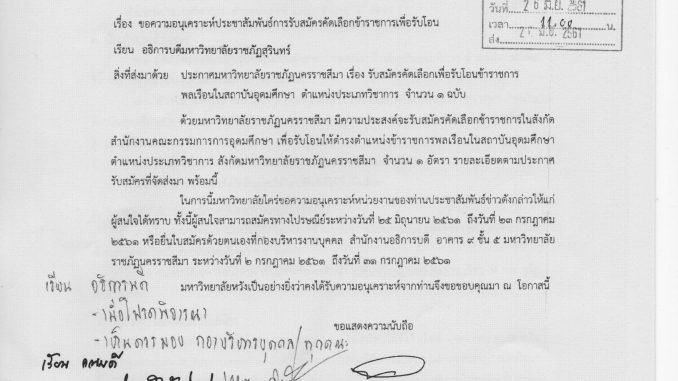 วันที่ 26 มิ.ย. 2561
เรื่อง ขอความอนุเคราะห์ประชาสัมพันธ์การรับสมัครคัดเลือกข้าราชการเพื่อรับโอน
เวลา 11.00 น.
ส่ง 2561
เรียน อธิการบดีมหาวิทยาลัยราชภัฏสุรินทร์
สิ่งที่ส่งมาด้วย ประกาศมหาวิทยาลัยราชภัฏนครราชสีมา เรื่อง รับสมัครคัดเลือกเพื่อรับโอนข้าราชการ
พลเรือนในสถาบันอุดมศึกษา ตำแหน่งประเภทวิชาการ จำนวน ๑ ฉบับ
ด้วยมหาวิทยาลัยราชภัฏนครราชสีมา มีความประสงค์จะรับสมัครคัดเลือกข้าราชการในสังกัด
สำนักงานคณะกรรมการการอุดมศึกษา เพื่อรับโอนให้ดำรงตำแหน่งข้าราชการพลเรือนในสถาบันอุดมศึกษา
ตำแหน่งประเภทวิชาการ สังกัดมหาวิทยาลัยราชภัฏนครราชสีมา จำนวน ๑ อัตรา รายละเอียดตามประกาศ
รับสมัครที่จัดส่งมา พร้อมนี้
ในการนี้มหาวิทยาลัยใคร่ขอความอนุเคราะห์หน่วยงานของท่านประชาสัมพันธ์ข่าวดังกล่าวให้แก่
ผู้สนใจได้ทราบ ทั้งนี้ผู้สนใจสามารถสมัครทางไปรษณีย์ระหว่างวันที่ ๒๕ มิถุนายน ๒๕๖๑ ถึงวันที่ ๒๓ กรกฎาคม
๒๕๖๑ หรือยื่นใบสมัครด้วยตนเองที่กองบริหารงานบุคคล สำนักงานอธิการบดี อาคาร ๙ ชั้น ๕ มหาวิทยาลัย
ราชภัฏนครราชสีมา ระหว่างวันที่ ๒ กรกฎาคม ๒๕๖๑ ถึงวันที่ ๓๑ กรกฎาคม ๒๕๖๑
มหาวิทยาลัยหวังเป็นอย่างยิ่งว่าคงได้รับความอนุเคราะห์จากท่านจึงขอขอบคุณมา ณ โอกาสนี้
เรียน อธิการบดี
-เพื่อโปรดพิจารณา
ขอแสดงความนับถือ
-เห็นควรมอบ กองบริหารบุคคล/ทุกคณะ
เรียน คณบดี